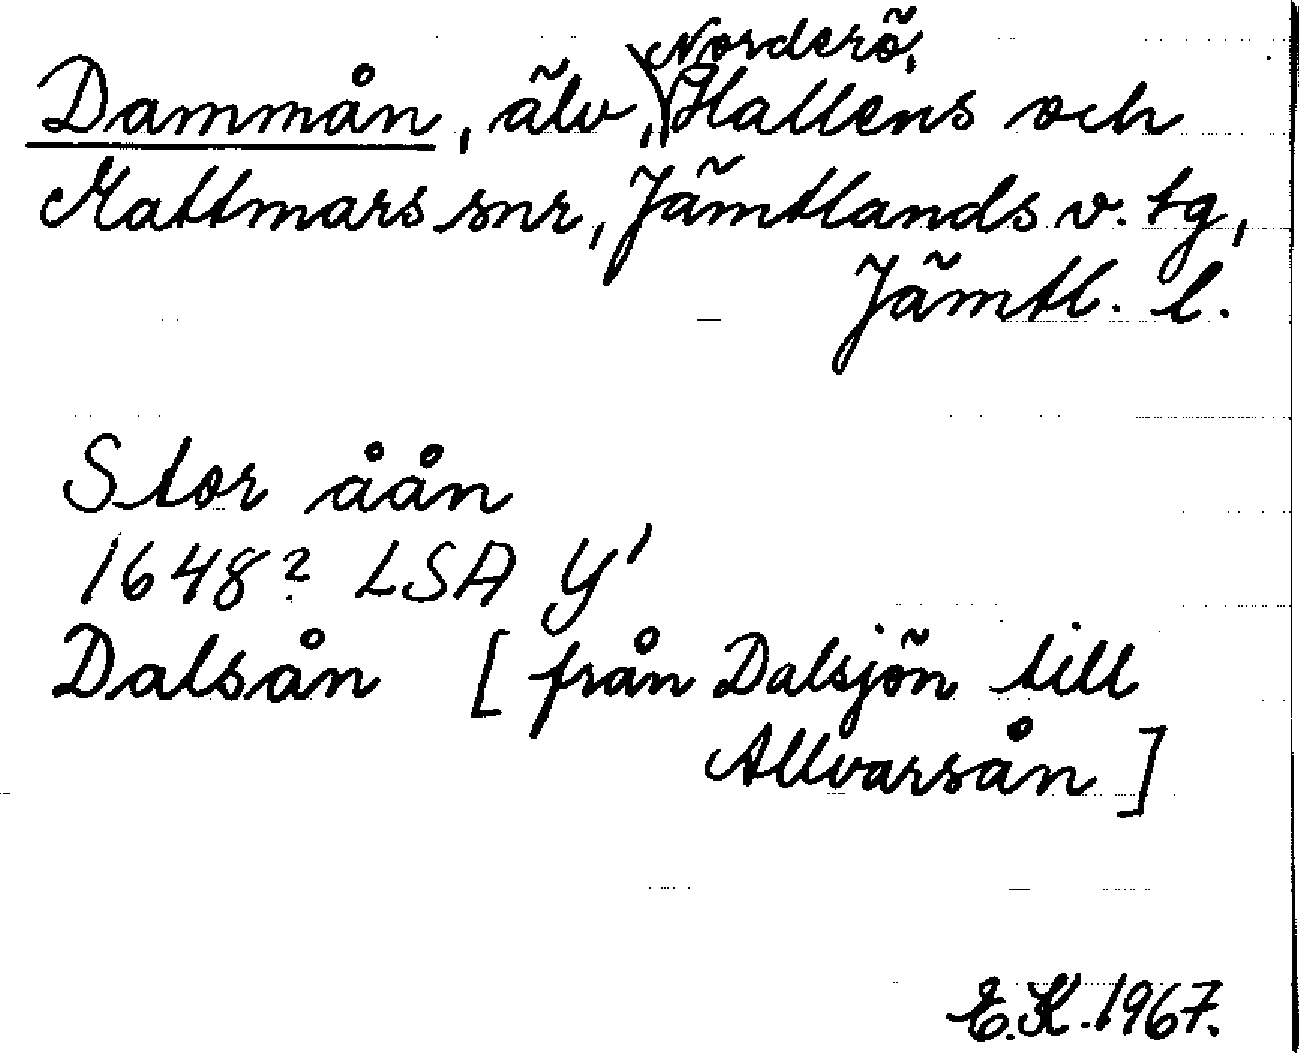 Norderö,
Dammån, älv, Hallens och
Mattmars snr, Jämtlands v. tg,
Jämtl. l.
Stor åån
1648? LSA Y1
Dalsån [från Dalsjön till
Allvarsån]
E.K. 1967.